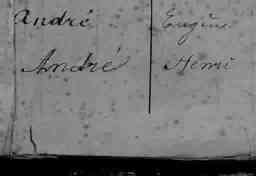 André Eugène
André Henri